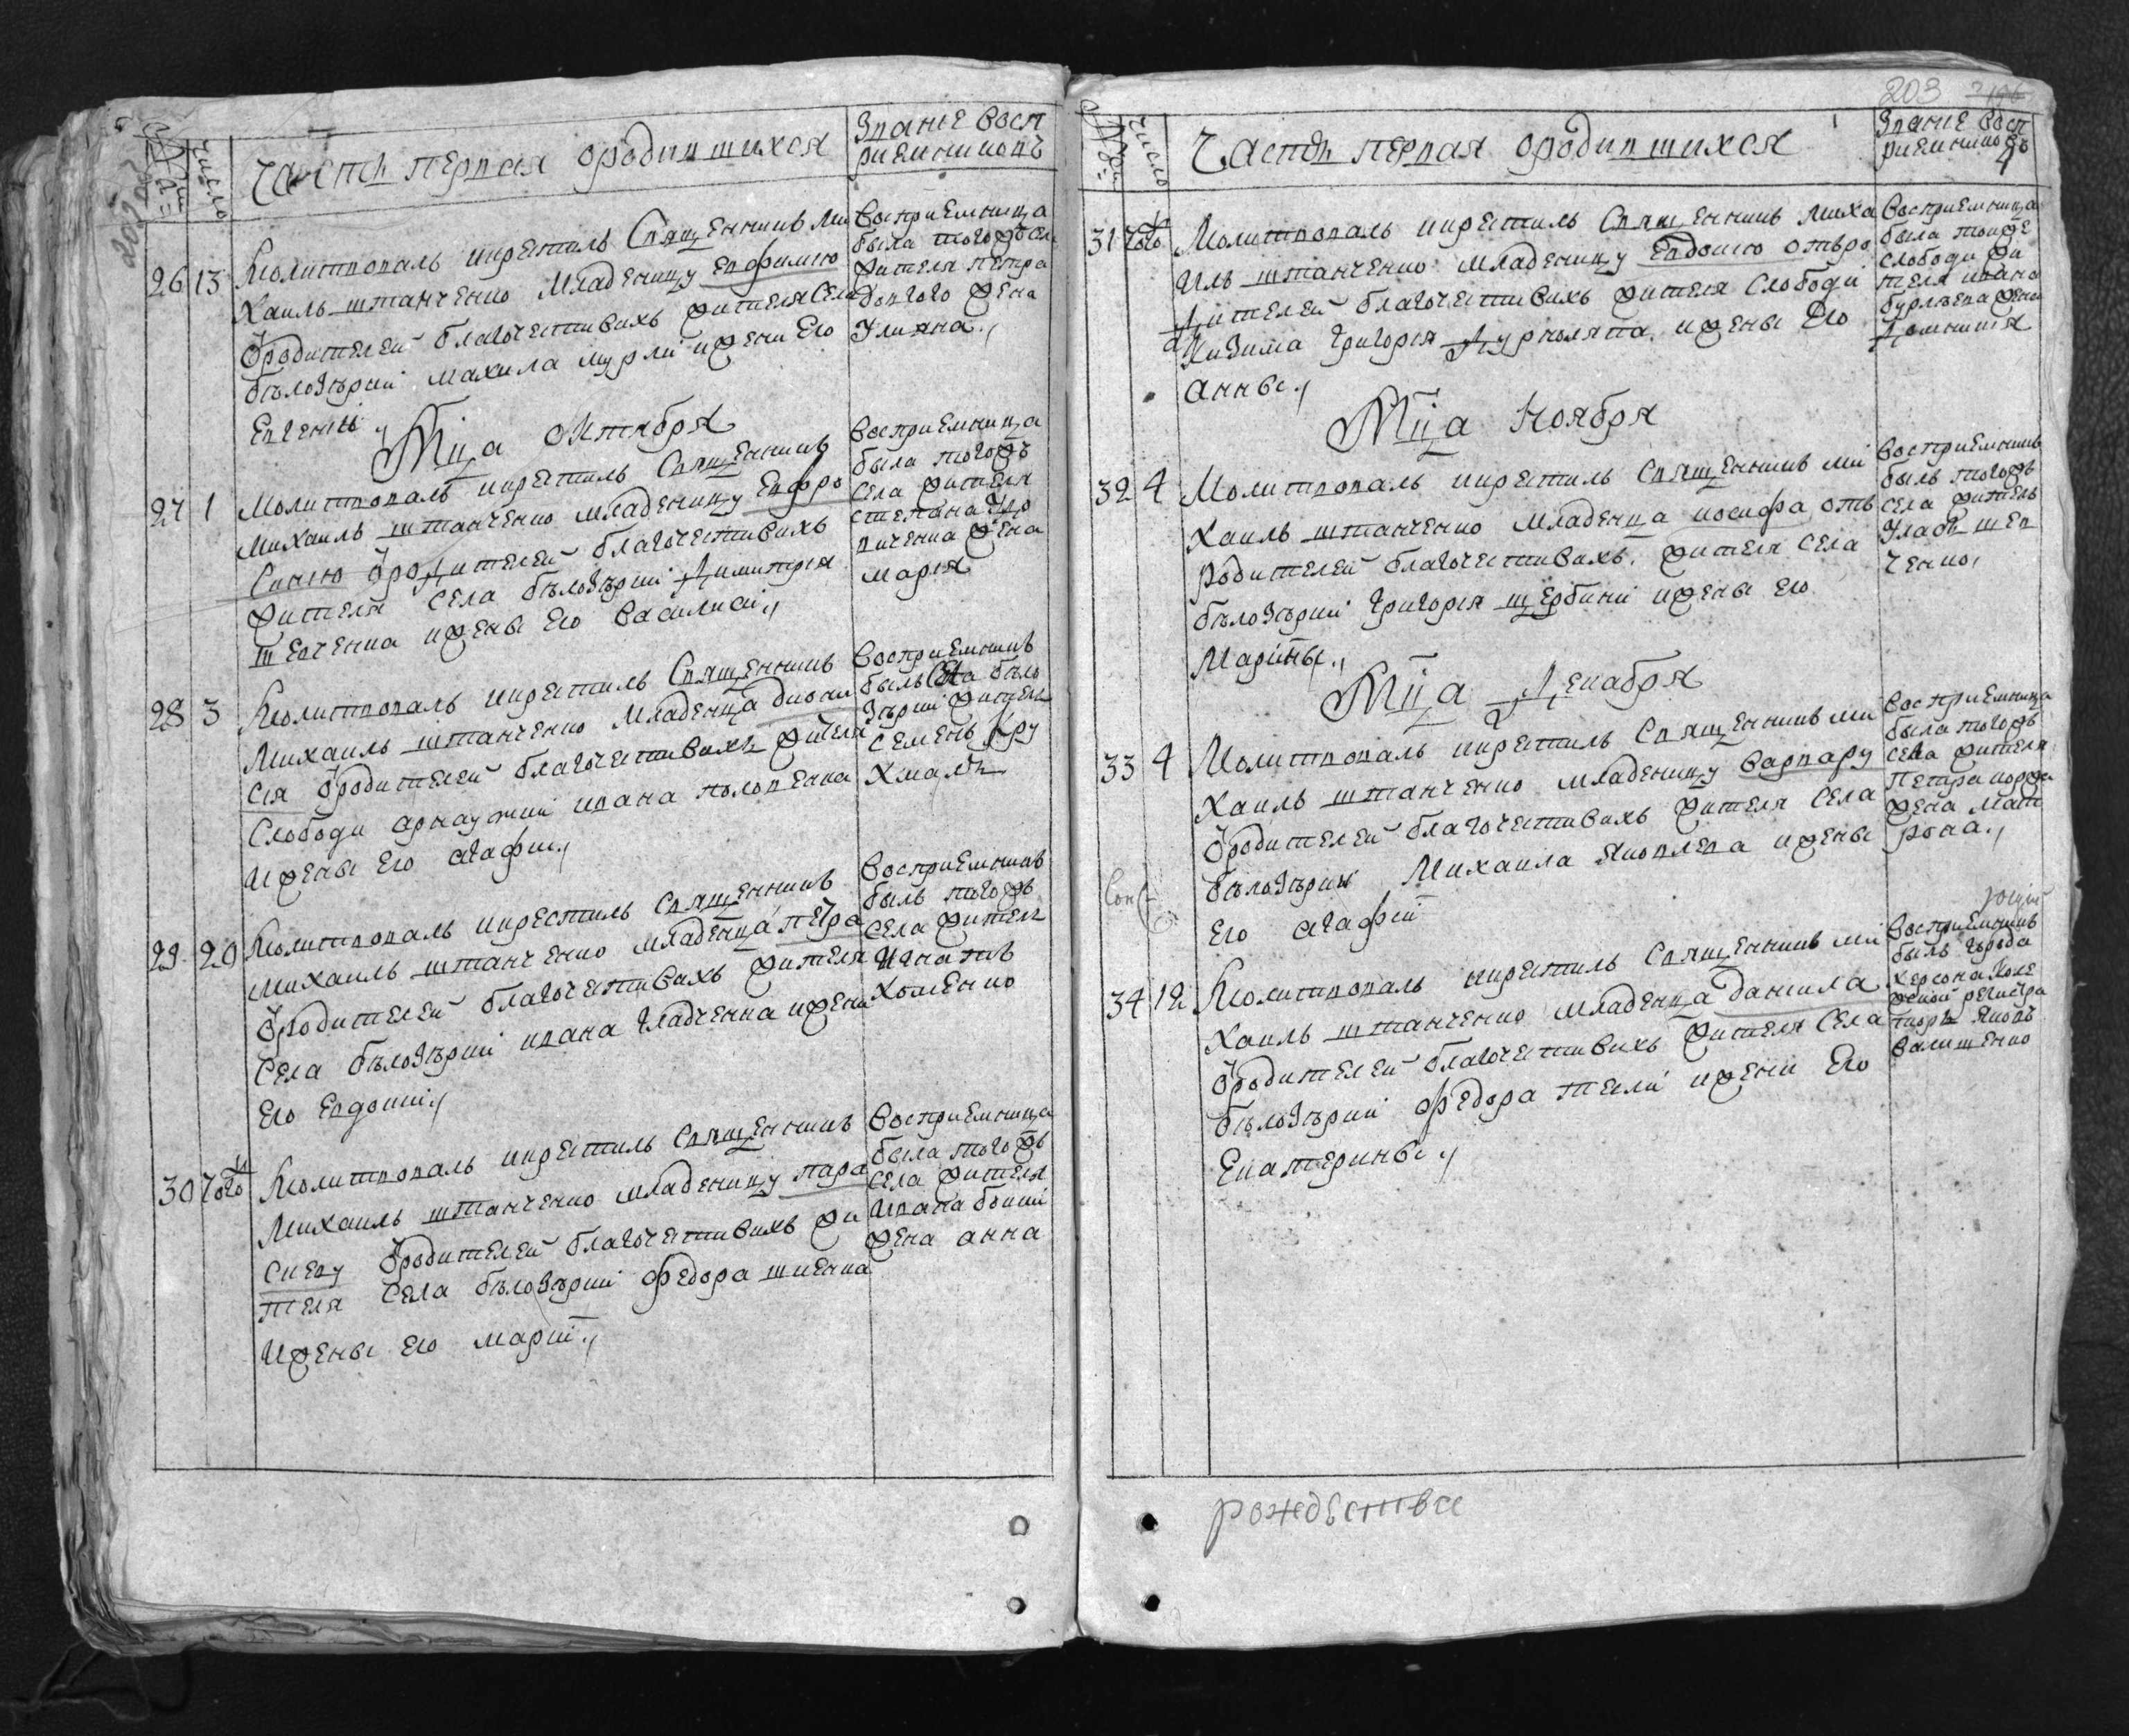 число
Часть первая ородившихся
Звание восп
риемниковъ
26 13 Молитвовалъ икрестилъ Священникъ Ми
хаилъ штанченко младеницу Евфимию
ѿродителей благочестивихъ жителя Села
бѣлозѣрки михаила мурли ижени Его
Евгении
Восприемница
была тогожъ села
жителя петра
Довгого жена
Улияна
Мца октября
27 1 Молитвовалъ икрестилъ Священникъ
Михаилъ штанченко младеницу Евфро
Синию ѿродителей благочестивихъ
жителя Села бѣлозѣрки Димитрия
шевченка ижены Его Василисы
Восприемница
была тогожъ
Села жителя
стефана
виченка жена
мария
28 3 Молитвовалъ икрестилъ Священникъ
Михаилъ штанченко младенца диони
сия ѿродителей благочестивихъ жителя
Слободи арнаутки ивана половенка
ижены Его агафии
Восприемникъ
былъ Села бѣло
зѣрки житель
Семенъ кру
хмаль
29 20 Молитвовалъ икрестилъ Священникъ
Михаилъ штанченко младенца петра
ѿродителей благочестивихъ жителя
Села бѣлозѣрки ивана гладченка ижени
Его Евдокии
Восприемникъ
былъ тогожъ
Села житель
Игнатъ
хоменко
30 того Молитвовалъ икрестилъ Священникъ
Михаилъ штанченко младеницу пара
скеву ѿродителей благочестивихъ жи
теля Села бѣлозѣрки федора шиенка
Ижены Его марии
Восприемница
была тогожъ
Села жителя
Ивана боики
жена анна
203
число
Часть первая ородившихся
Звание восп
риемниковъ
31 того Молитвовалъ икрестилъ Священникъ Миха
илъ штанченко младеницу Евдокию отъро
дителей благочестивихъ жителя Слободи
Кизима григория Дурноляпа ижены Его
анны
Восприемница
была тоиже
слободи жи
теля ивана
бурлѣва жена
Домникия
Мца Ноября
32 4 Молитвовалъ икрестилъ Священникъ Ми
хаилъ штанченко младенца иосифа отъ
родителей благочестивихъ жителя Села
бѣлозѣрки григория щербини ижены Его
Марины
Восприемникъ
былъ тогожъ
села житель
Уласъ шев
ченко
Мца Декабря
33 4 Молитвовалъ икрестилъ Священникъ ми
хаилъ штанченко младеницу варвару
ѿродителей благочестивихъ жителя Села
бѣлозѣрки Михаила яковлева ижены
Его агафии
Восприемница
была тогожъ
села жителя
Петра коржа
жена мат
рона
34 12 Молитвовалъ икрестилъ Священникъ ми
хаилъ штанченко младенца даниила
ѿродителей благочестивихъ жителя Села
бѣлозѣрки федора тели ижени Его
Екатерины
Восприемникъ
былъ города
херсона коле
жский регистра
торъ яковъ
Валишенко
рождѣства